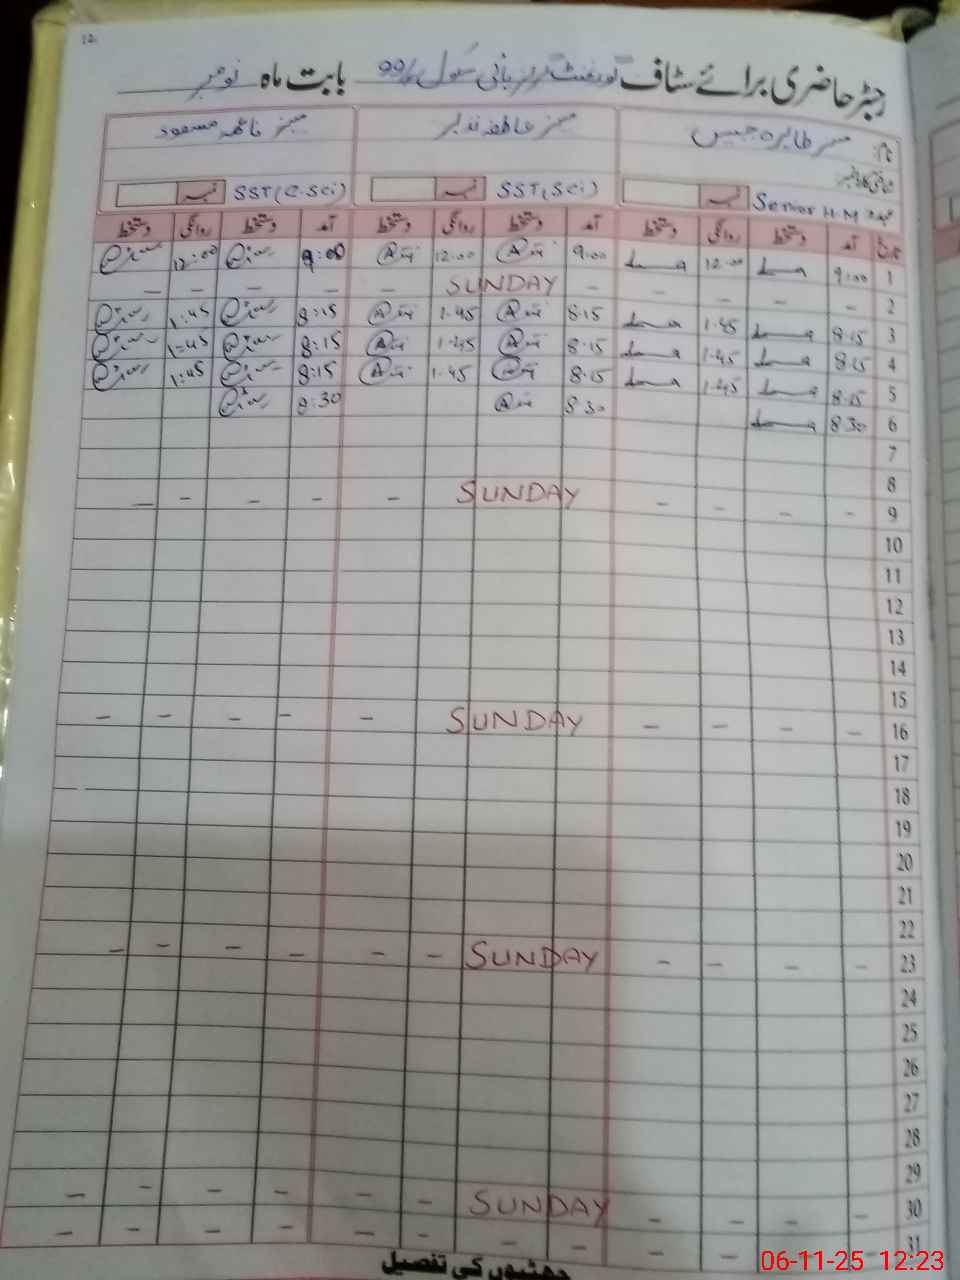 12
رجسٹر حاضری برائے سٹاف گورنمنٹ سکول 99/ بابت ماہ نومبر
نام: مسز طاہرہ جبیں مسز عاطفہ نذیر مسز فاطمہ مسعود
شناختی کارڈ نمبر:
عہدہ Senior H.M نمبر SST (Sci) نمبر SST (C.Sci) نمبر
تاریخ آمد دستخط روانگی دستخط آمد دستخط روانگی دستخط آمد دستخط روانگی دستخط
1 9:00 12:00 9:00 12:00 9:00 12:00
2 - - - - - SUNDAY - - - - - -
3 8:15 1.45 8:15 1.45 8:15 1:45
4 8:15 1.45 8:15 1.45 8:15 1:45
5 8:15 1.45 8:15 1.45 8:15 1:45
6 8:30 8:30 8:30
7
8
9 - - - - SUNDAY - - - - -
10
11
12
13
14
15
16 - - - - SUNDAY - - - - -
17
18
19
20
21
22
23 - - - - SUNDAY - - - - - -
24
25
26
27
28
29
30 - - - - SUNDAY - - - - - -
31 - - - - - - - - - - - -
چھٹیوں کی تفصیل
06-11-25 12:23